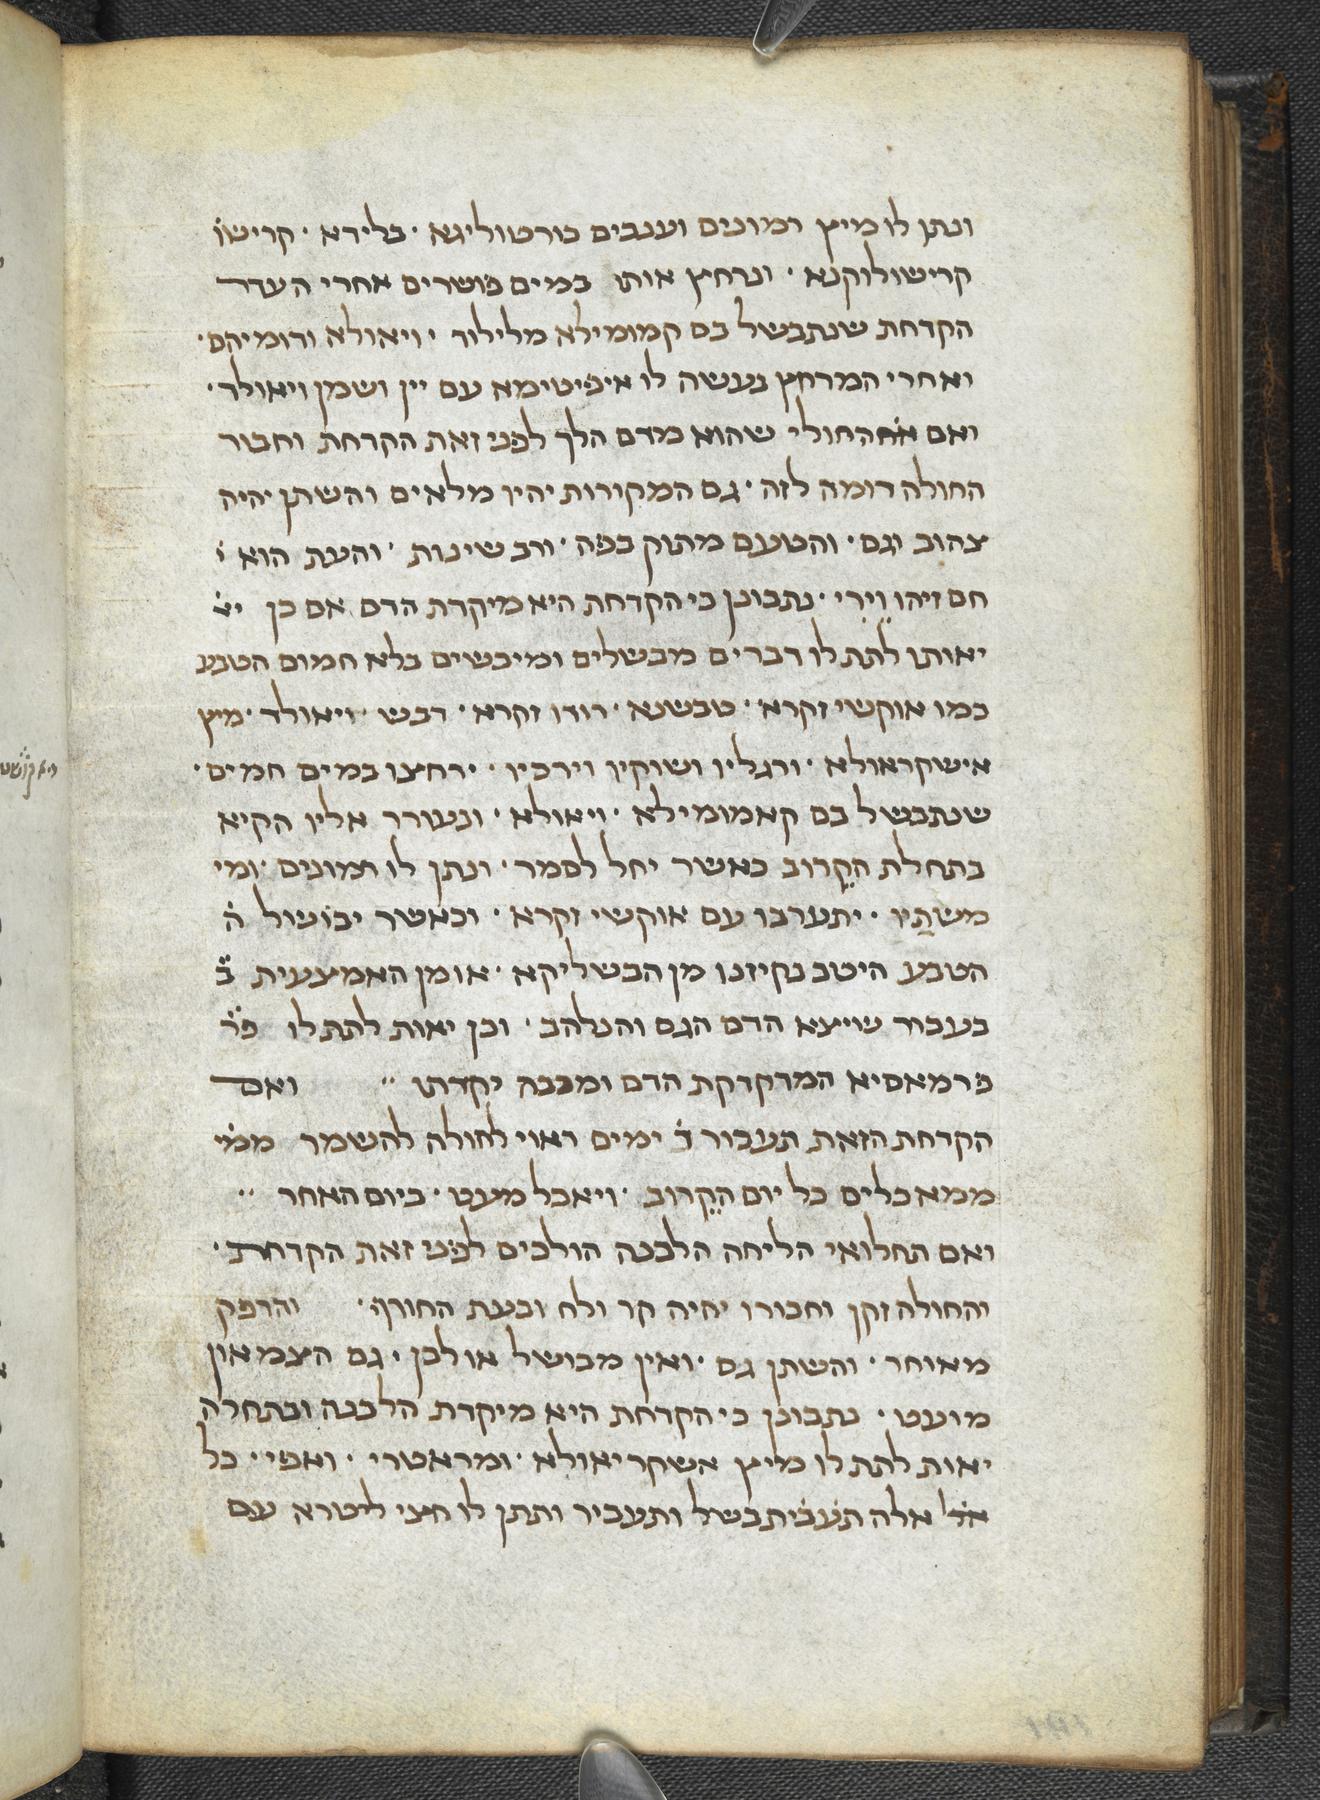 ונתן לו מיץ רמונים וענבים פורטוליגא · בלידא · קרישו
קרישולוקנא · ונרחץ אותו במים פושרים אחרי העדר
הקדחת שנתבשל בם קמומילא מלילוד · ויאולא ודומיהם ·
ואחרי המרחץ נעשה לו איפיטימא עם יין ושמן ויאולד ·
ואם החולי שהוא מדם הלך לפני זאת הקדחת וחבור
החולה דומה לזה · גם המקורות יהיו מלאים והשתן יהיה
צהוב וגם · והטעם מתוק בפה · ורב שינות · והעת הוא י
חם זיהו וירי · נתבונן כי הקדחת היא מיקדת הדם אם כן יא
יאותו לתת לו דברים מבשלים ומיבשים בלא חמום הטבע
כמו אוקשי זקרא · טבשנא · רודו זקרא · דבש · ויאולד · מיץ
אישקראולא · ורגליו ושוקיו וירכיו · ירחצו במים חמים ·
שנתבשל בם קאמומילא · ויאולא · ונעורר אליו הקיא
בתחלת הקרוב כאשר יחל לסמר · ונתן לו רמונים · ומי
משתיו · יתערבו עם אוקשי זקרא · וכאשר יבושל ה
הטבע היטב נקיזנו מן הבשליקא · או מן האמצעית ב
בעבור שייצא הדם הגס והנלהב · וכן יאות לתת לו פר
פרמאסיא המדקדקת הדם ומכבה יקדתו ·· ואם
הקדחת הזאת תעבור ד ימים ראוי לחולה להשמר ממי
ממאכלים כל יום הקרוב · ויאכל מעט · ביום האחר ··
ואם תחלואי הליחה הלבנה הולכים לפני זאת הקדחת ·
והחולה זקן וחבורו יהיה קר ולח ובעת החורף · והדפק
מאוחר · והשתן גס · ואין מבושל או לבן · גם הצמאון
מועט · נתבונן כי הקדחת היא מיקדת הלבנה ובתחלה
יאות לתת לו מיץ אשקריאולא · ומראטרי · ואפי · כל
אלה תבשל ותעביר ותתן לו חצי ליטרא עם